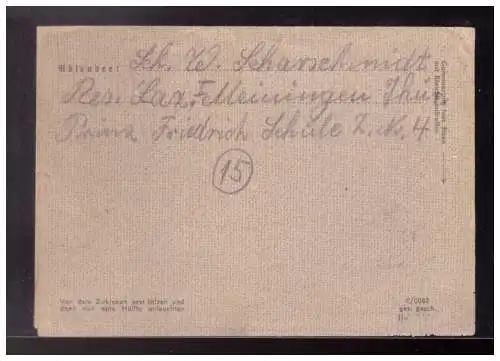 Absender: Sch. W. Scharschmidt
Res. Laz. F. Meiningen Thür
Prinz Friedrich Schule Z. No. 4
15
Vor dem Zukleben erst falzen und
dann nur eine Hälfte anfeuchten
C/0062
ges. gesch.